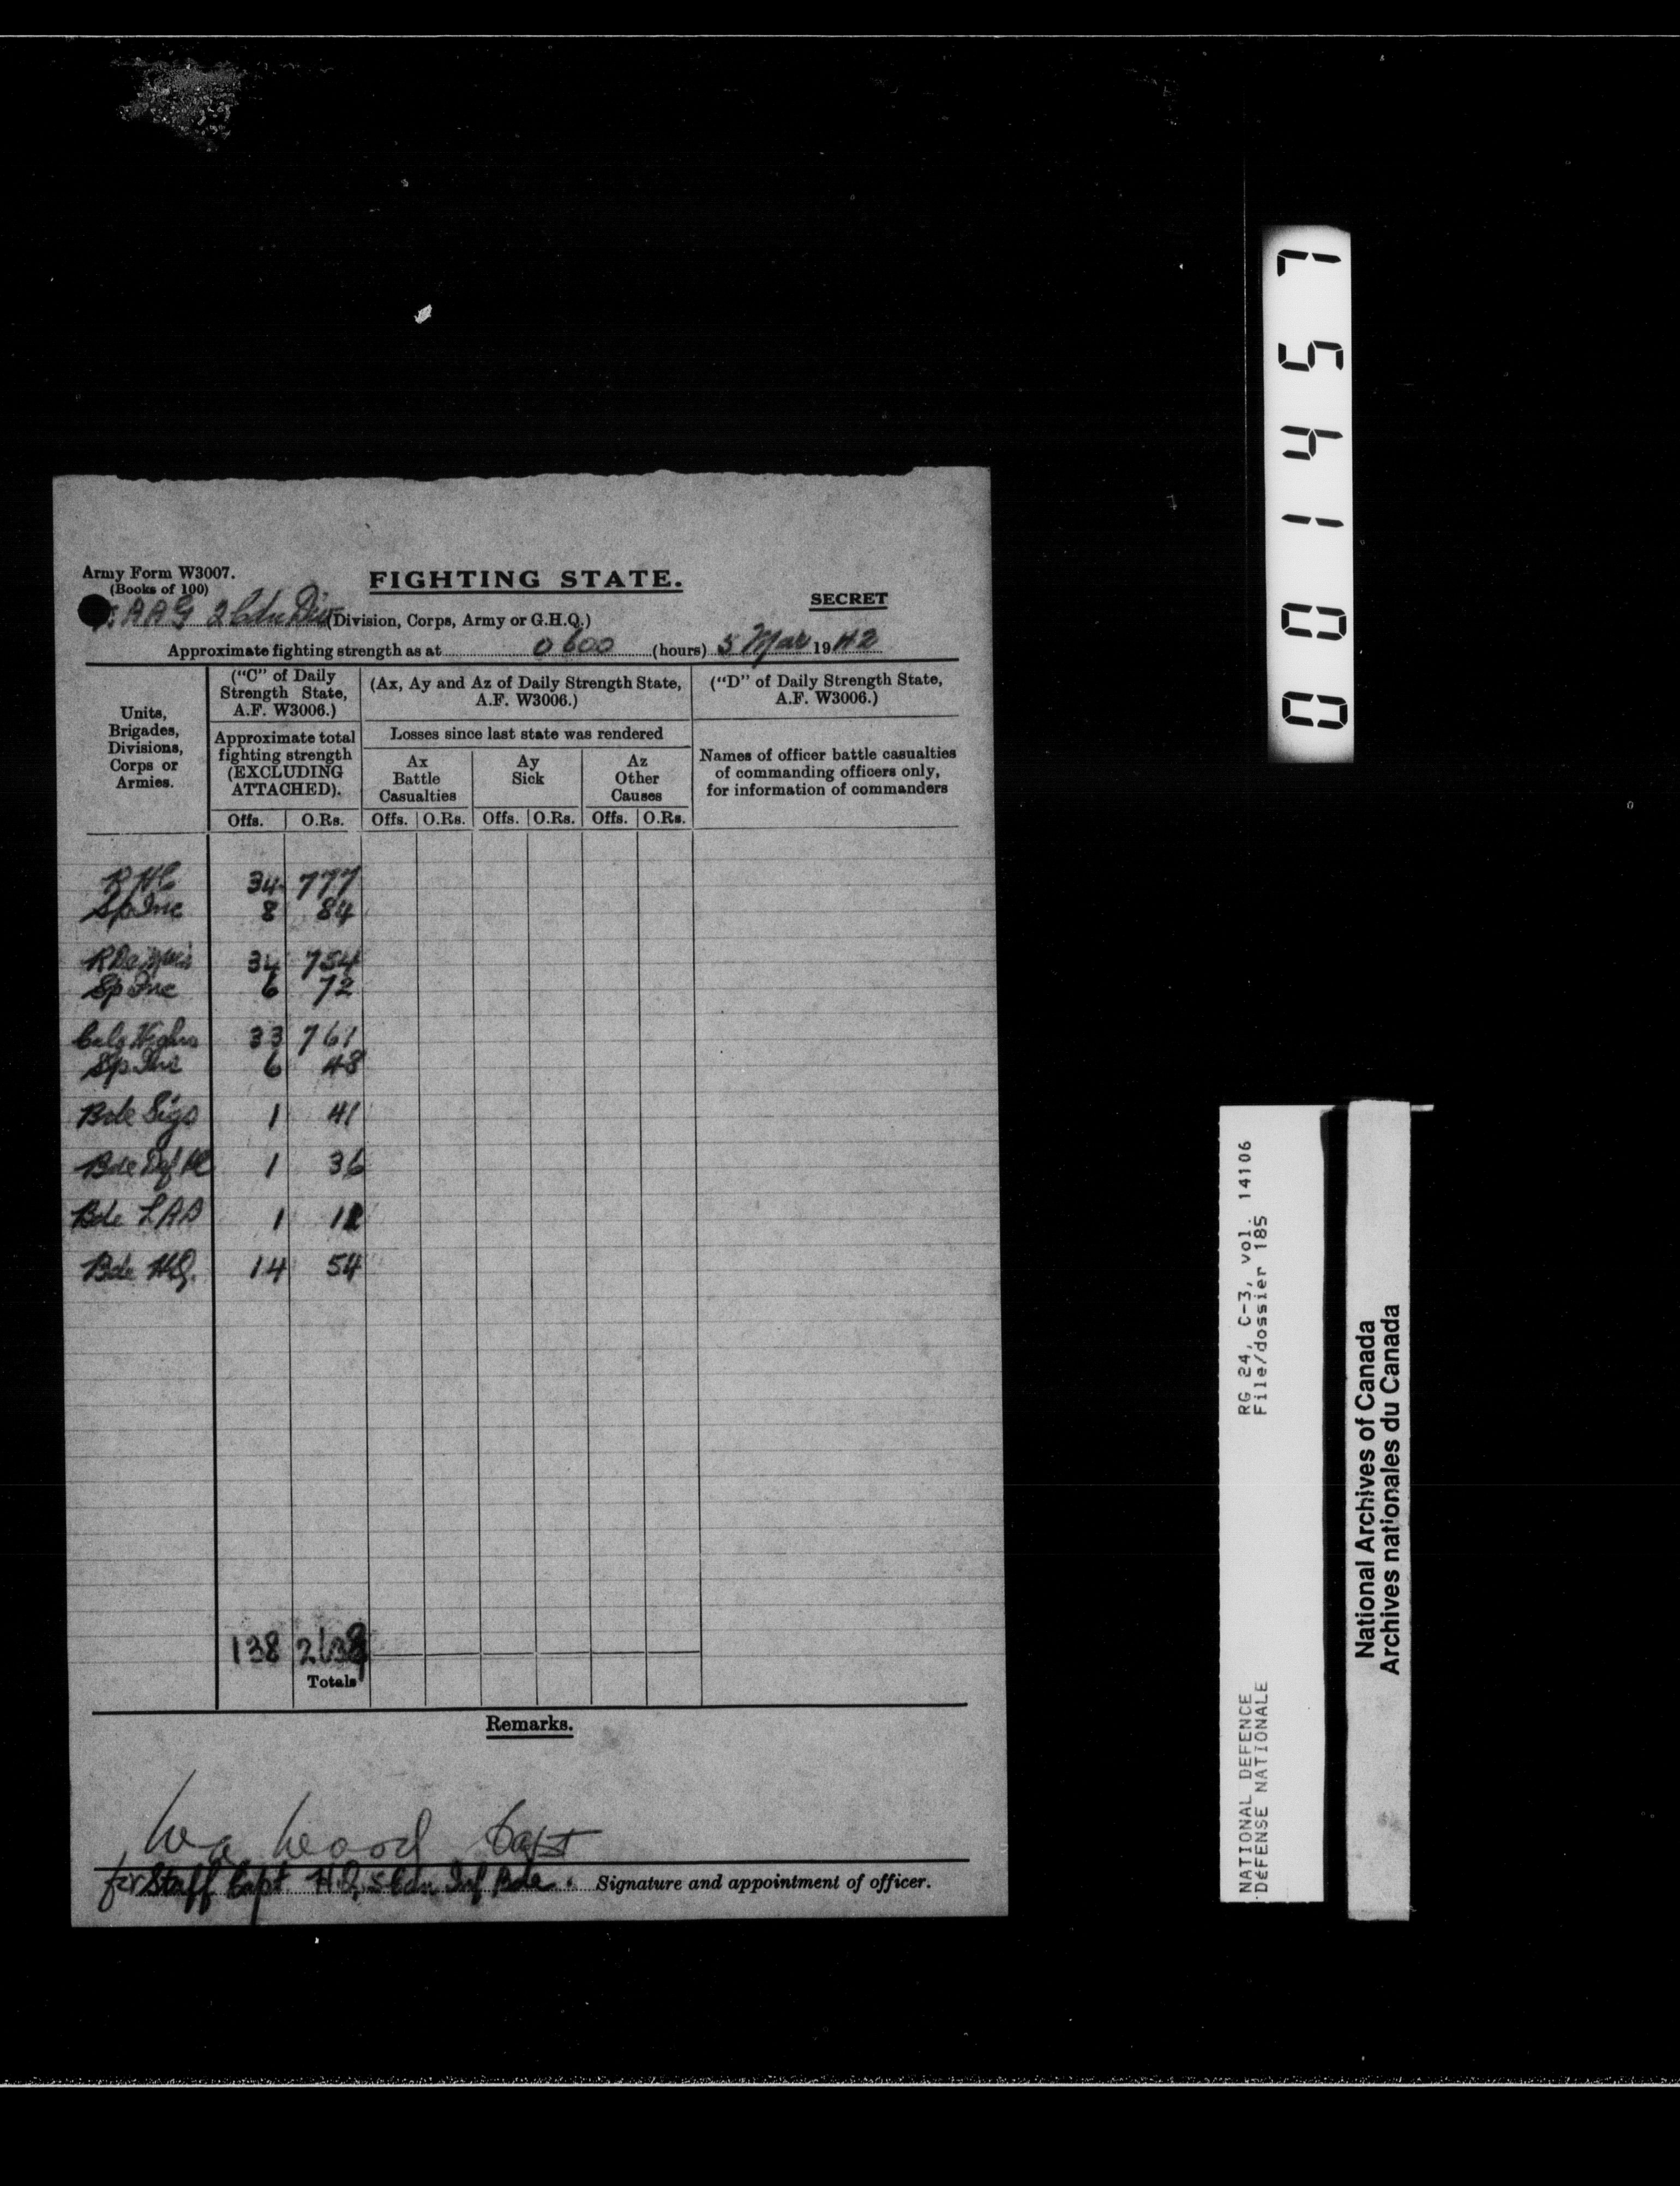 Army Form W3007.
(Books of 100)
FIGHTING STATE.
SECRET
AAG 2 Cdn Div (Division, Corps, Army or G.H.Q.)
Approximate fighting strength as at 0600 (hours) 5 Mar 1942
Units, Brigades, Divisions, Corps or Armies.
("C" of Daily Strength State, A.F. W3006.)
(Ax, Ay and Az of Daily Strength State, A.F. W3006.)
("D" of Daily Strength State, A.F. W3006.)
Approximate total fighting strength (EXCLUDING ATTACHED).
Losses since last state was rendered
Names of officer battle casualties of commanding officers only, for information of commanders
Ax Battle Casualties
Ay Sick
Az Other Causes
Offs. O.Rs. Offs. O.Rs. Offs. O.Rs. Offs. O.Rs.
RHC 34 777
Sp Inc 8 84
R De Mais 34 754
Sp Inc 6 72
Calg Highrs 33 761
Sp Inc 6 48
Bde Sigs 1 41
Bde Def Pl 1 36
Bde LAD 1
Bde HQ. 14 54
138
Totals
Remarks.
Wood Capt
for Staff Capt HQ 5 Cdn Inf Bde. Signature and appointment of officer.
001457
RG 24, C-3, vol. 14106
File/dossier 185
NATIONAL DEFENCE
DÉFENSE NATIONALE
National Archives of Canada
Archives nationales du Canada